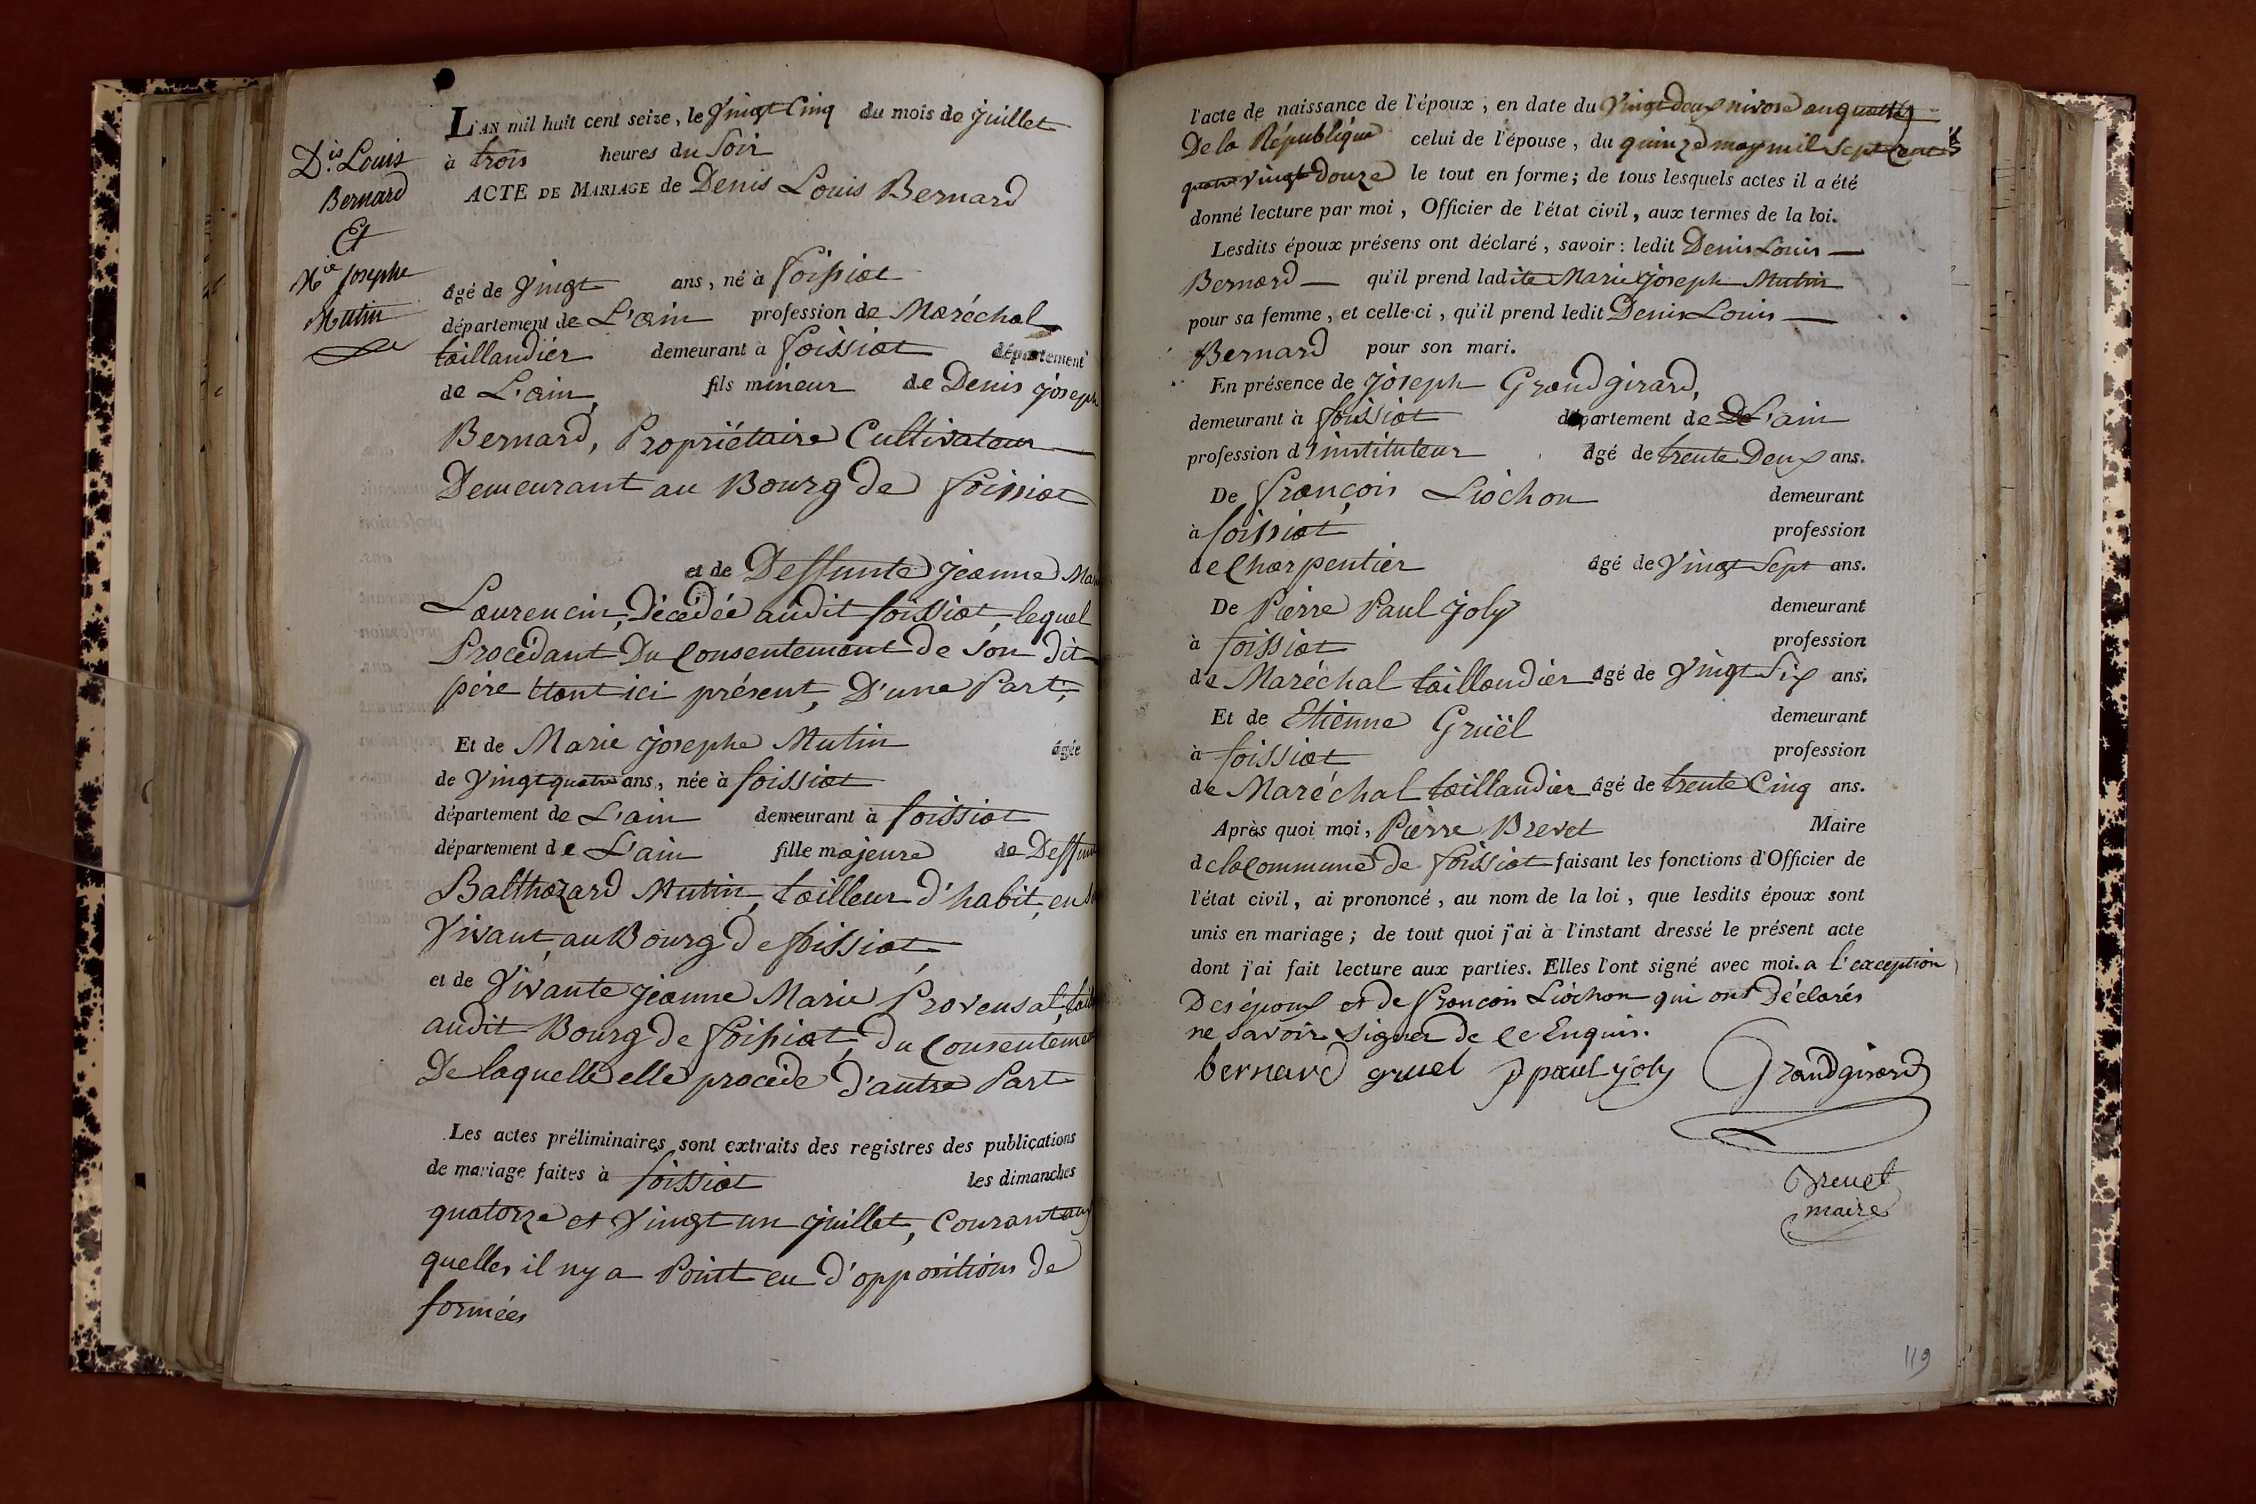 D.is Louis
Bernard
Et
M.ie Josephe
Mutin
L'AN mil huit cent seize, le Vingt Cinq du mois de Juillet
à trois heures du Soir
ACTE DE MARIAGE de Denis Louis Bernard
âgé de Vingt ans, né à foissiat
département de L'ain profession de Maréchal
taillandiér demeurant à foissiat département
de L'ain, fils mineur de Denis Joseph
Bernard, Propriétaire Cultivateur
Demeurant au Bourg de foissiat
et de Deffunte Jeanne
Laurencin, Décédée audit foissiat, lequel
Procédant Du Consentement de Son dit
pére étant ici présent, D'une Part;
Et de Marie Josephe Mutin âgée
de Vingt quatre ans, née à foissiat
département de L'ain demeurant à foissiat
département de L'ain fille majeure de
Balthazard Mutin, tailleur d'habit, en
Vivant, au Bourg de foissiat,
et de Vivante Jeanne Marie Provensal,
audit Bourg de foissiat, du Consentement
De laquelle elle procède D'autre Part
Les actes préliminaires sont extraits des registres des publications
de mariage faites à foissiat les dimanches
quatorze et Vingt un Juillet, Courant aux
quelles il ny a Point eu d'oppositions de
formées
l'acte de naissance de l'époux, en date du Vingt deux nivose an quatre
De la République celui de l'épouse, du quinze may mil Sept Cent
quatre Vingt douze le tout en forme; de tous lesquels actes il a été
donné lecture par moi, Officier de l'état civil, aux termes de la loi.
Lesdits époux présens ont déclaré, savoir: ledit Denis Louis
Bernard qu'il prend ladite Marie Joseph Mutin
pour sa femme, et celle-ci, qu'il prend ledit Denis Louis
Bernard pour son mari.
En présence de Joseph Grandgirard,
demeurant à foissiat département de De L'ain
profession d'instituteur âgé de trente Deux ans.
De françois Liochon demeurant
à foissiat profession
de Charpentier âgé de Vingt Sept ans.
De Pierre Paul Joly demeurant
à foissiat profession
de Maréchal taillandier âgé de Vingt Six ans.
Et de Etienne Gruël demeurant
à foissiat profession
de Maréchal taillandier âgé de trente Cinq ans.
Après quoi moi, Pierre Brevet Maire
de la Commune de foissiat faisant les fonctions d'Officier de
l'état civil, ai prononcé, au nom de la loi, que lesdits époux sont
unis en mariage; de tout quoi j'ai à l'instant dressé le présent acte
dont j'ai fait lecture aux parties. Elles l'ont signé avec moi. a L'exception
Des époux et de françois Liochon qui ont Déclarés
ne Savoir Signer de Ce Enquis.
bernard gruel p paul joly Grandgirard
Brevet
maire
119